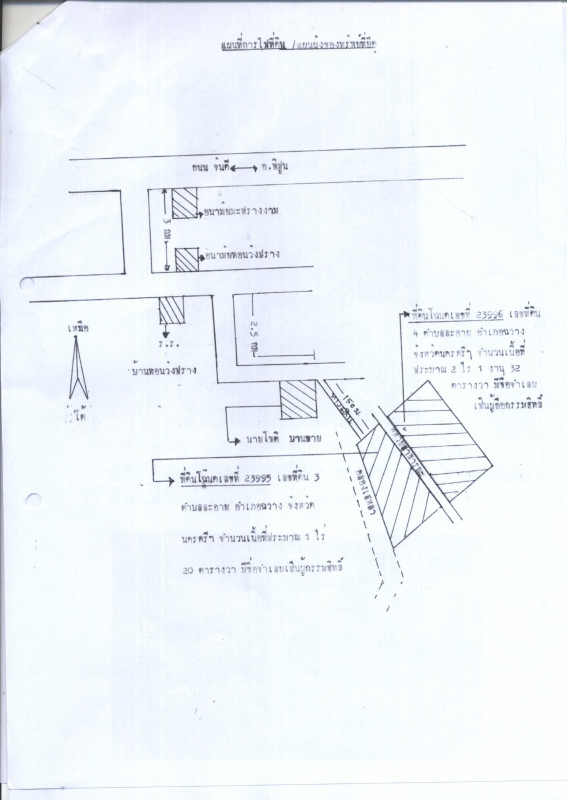 แผนที่การไปที่ดิน /แผนผังของทรัพย์ที่ยึด
ถนน จันดี
อ.พิปูน
3 กม
อนามัยมะปรางงาม
อนามัยทอนวังปราง
2.5 กม
ร.ร.
บ้านทอนวังปราง
เหนือ
ใต้
ที่ดินโฉนดเลขที่ 23996 เลขที่ดิน
4 ตำบลละอาย อำเภอฉวาง
จังหวัดนครศรีฯ จำนวนเนื้อที่
ประมาณ 2 ไร่ 1 งาน 32
ตารางวา มีชื่อจำเลย
เป็นผู้ถือกรรมสิทธิ์
150 ม
ทางเดิน
ทางสาธารณะ
นายโชติ
ที่ดินโฉนดเลขที่ 23995 เลขที่ดิน 3
ตำบลละอาย อำเภอฉวาง จังหวัด
นครศรีฯ จำนวนเนื้อที่ประมาณ 1 ไร่
20 ตารางวา มีชื่อจำเลยเป็นผู้กรรมสิทธิ์